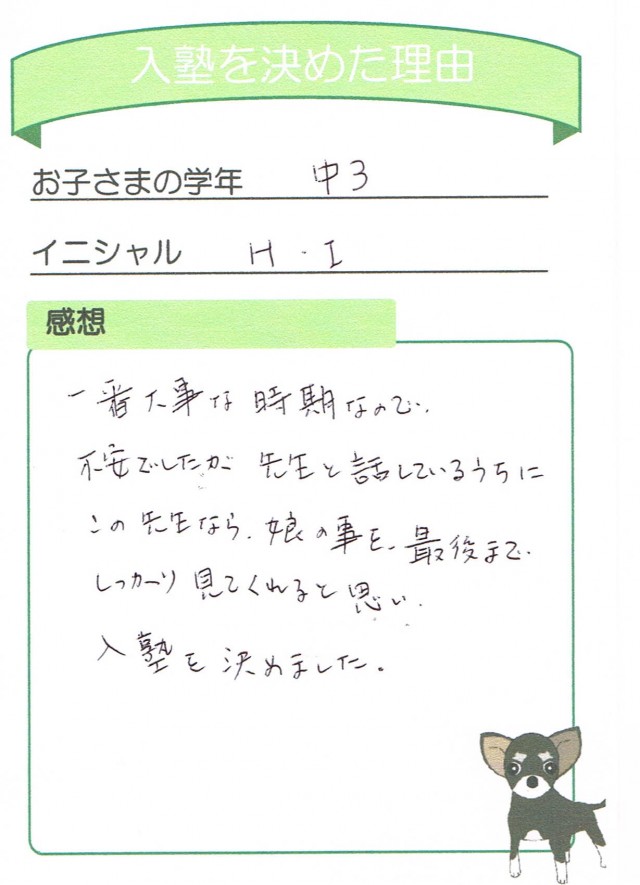 入塾を決めた理由
お子さまの学年 中3
イニシャル H・I
感想
一番大事な時期なので、
不安でしたが 先生と話しているうちに
この先生なら、娘の事を、最後まで、
しっかり見てくれると思い、
入塾を決めました。